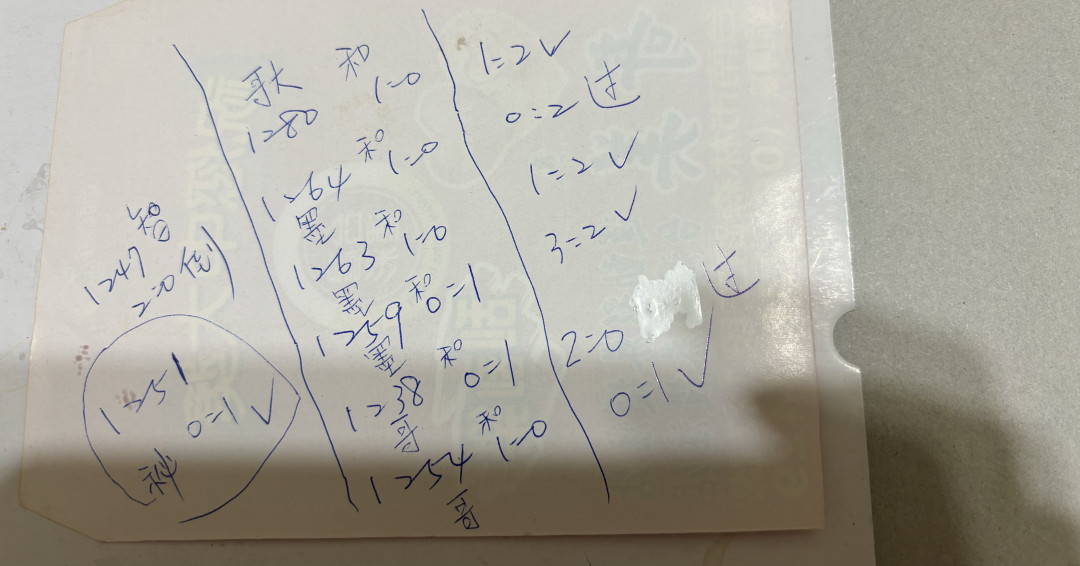 智
1247
2=0 倒
1251
0=1 √
科
歌大 和
1=0
1280
和
1264 1=0
墨
和
1263 1=0
墨
和
1259 0=1
墨
和
1238 0=1
哥
和
1254 1=0
哥
1=2 √
0=2 过
1=2 √
3=2 √
2=0 过
0=1 √